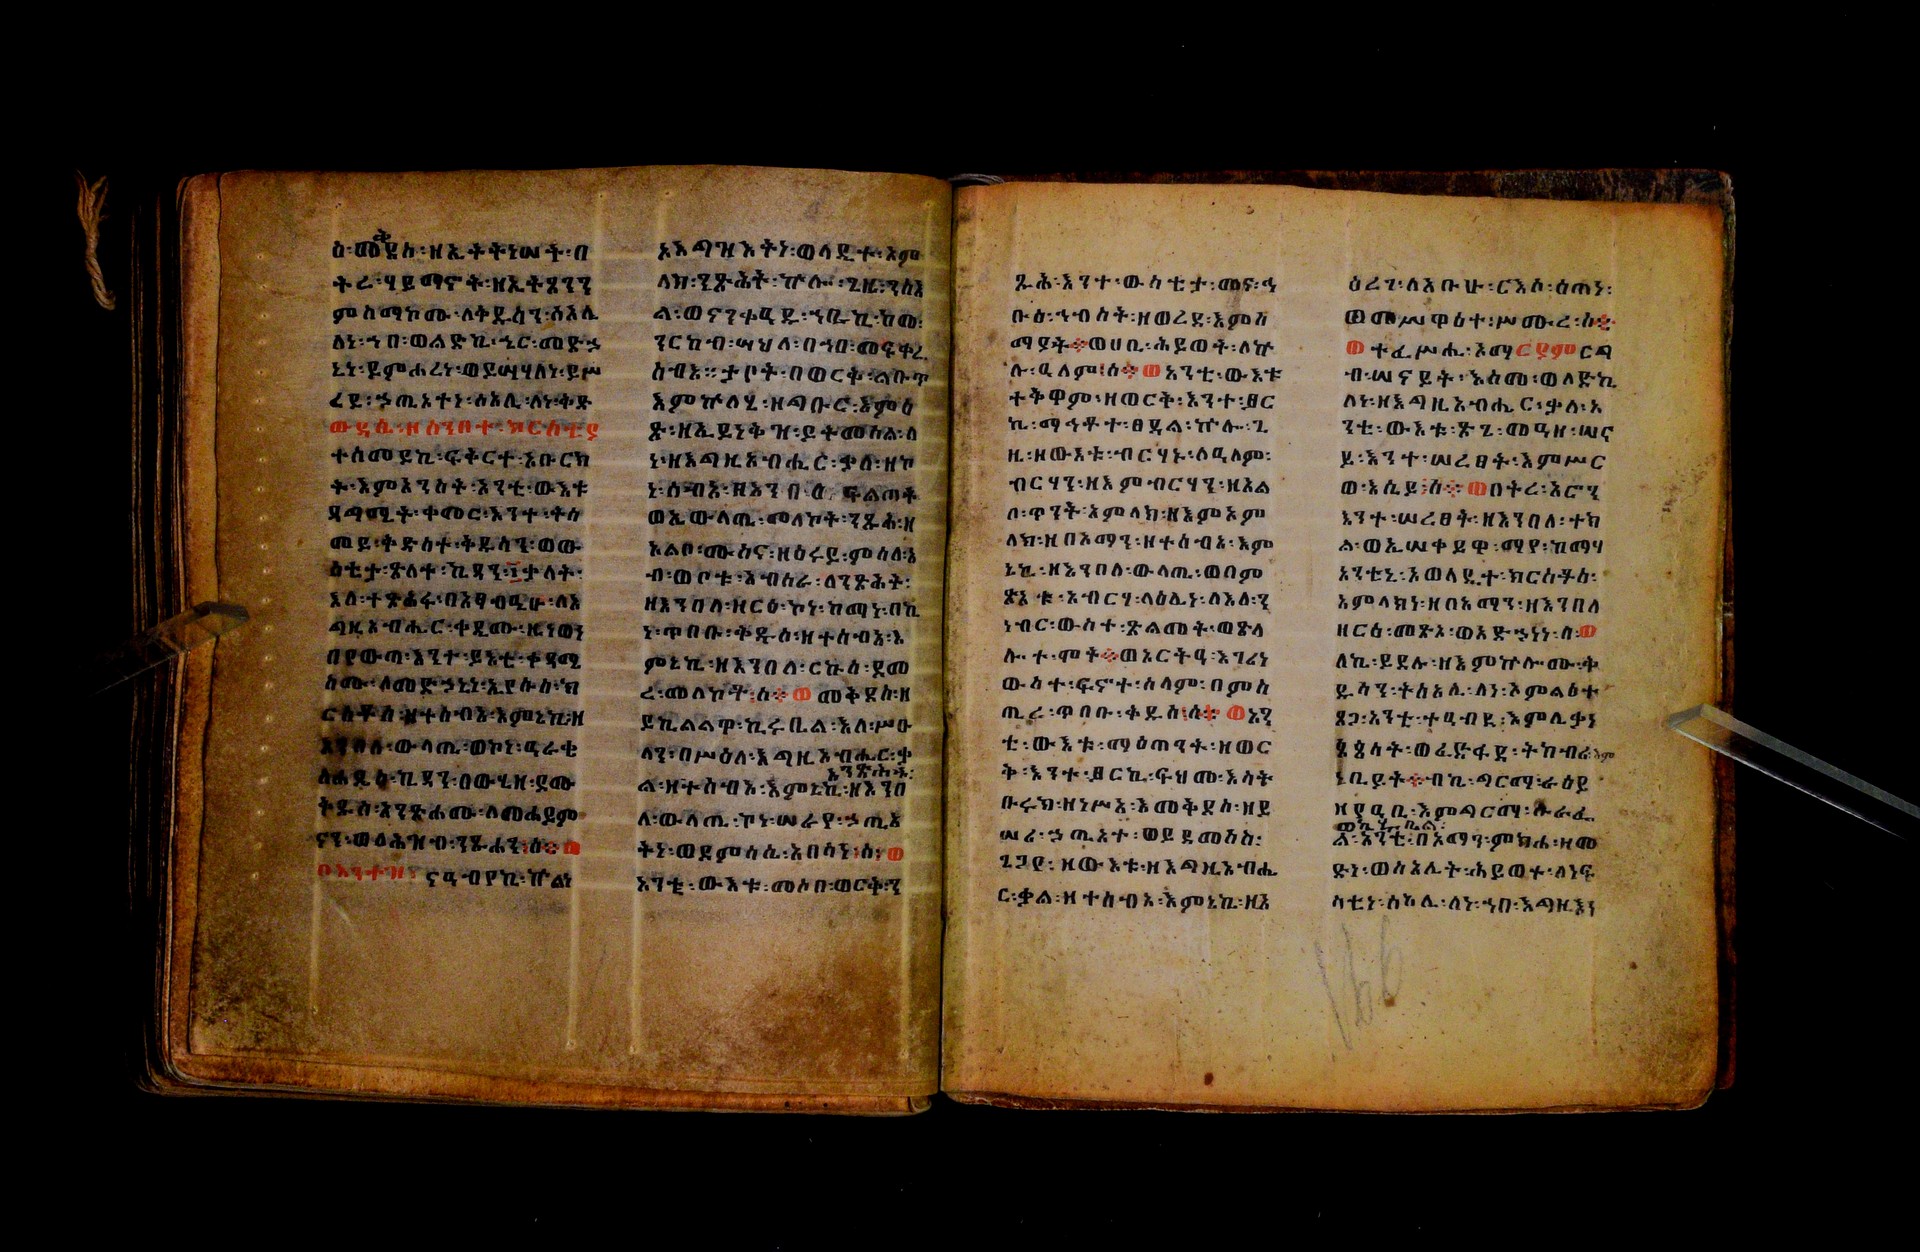 ስ፡መቅደስ፡ዘኢትትነሠት፡በ
ትረ፡ሃይማኖት፡ዘኢትጸንን
ምስማከሙ፡ለቅዱሳን፡ሰአሊ
ለነ፡ኀበ፡ወልድኪ፡ኄር፡መድኃ
ኒነ፡ይምሐረነ፡ወይሣሃለነ፡ይሥ
ረይ፡ኃጢአተነ፡ሰአሊ፡ለነ፡ቅድ
ተሰመይኪ፡ፍቅርተ፡ኦቡርክ
ት፡እምአንስት፡አንቲ፡ውእቱ
ዳግሚት፡ቀመር፡እንተ፡ትሰ
መይ፡ቅድስተ፡ቅዱሳን፡ወው
ስቴታ፡ጽላተ፡ኪዳን፡፲ቃላት፡
እለ፡ተጽሕፋ፡በአፃብዒሁ፡ለእ
ግዚአብሔር፡ቀዲሙ፡ዜነወነ
በየውጣ፡እንተ፡ይእቲ፡ቀዳሚ
ስሙ፡ለመድኃኒነ፡ኢየሱስ፡ክ
ርስቶስ፡ዘተሰብአ፡እምኔኪ፡ዘ
እንበለ፡ውላጤ፡ወኮነ፡ዓራቂ
ለሐዲስ፡ኪዳን፡በውሂዘ፡ደሙ
ቅዱስ፡አንጽሖሙ፡ለመሐይም
ናን፡ወለሕዝብ፡ንጹሐን፡ሰ፡ወ
በእንተዝ፡ናዓብየኪ፡ኵልነ
ኦእግዝእትነ፡ወላዲተ፡አም
ላክ፡ንጽሕት፡ኵሎ፡ጊዜ፡ንስእ
ል፡ወናንቀዓዱ፡ኀቤኪ፡ከመ፡
ንርከብ፡ሣህለ፡በኀበ፡መፍቀሬ
ሰብእ።ታቦት፡በወርቅ፡ልቡጥ
እምኵለሄ፡ዘግቡር፡እምዕ
ፅ፡ዘኢይነቅዝ፡ይትመሰል፡ለ
ነ፡ዘእግዚአብሔር፡ቃለ፡ዘኮ
ነ፡ሰብአ፡ዘእንበለ፡ፍልጠት
ወኢውላጤ፡መለኮት፡ንጹሕ፡ዘ
አልቦ፡ሙስና፡ዘዕሩይ፡ምስለ፡አ
ብ፡ወቦቱ፡አብሰራ፡ለንጽሕት፡
ዘእንበለ፡ዘርዕ፡ኮነ፡ከማነ፡በኪ
ነ፡ጥበቡ፡ቅዱስ፡ዘተሰብአ፡እ
ምኔኪ፡ዘእንበለ፡ርኩስ፡ደመ
ረ፡መለኮቶ፡ሰ፡ወ መቅደስ፡ዘ
ይኬልልዋ፡ኪሩቤል፡እለ፡ሥዑ
ላን፡በሥዕለ፡እግዚአብሔር፡ቃ
ል፡ዘተሰብአ፡እምኔኪ፡ዘእንበ
ለ፡ውላጤ፡ኮነ፡ሠራዬ፡ኃጢአ
ትነ፡ወደምሳሴ፡አበሳነ፡ሰ፡ወ
አንቲ፡ውእቱ፡መሶበ፡ወርቅ፡ን
ጹሕ፡እንተ፡ውስቴታ፡መና፡ኅ
ቡዕ፡ኅብስት፡ዘወረደ፡እምሰ
ማያት፡ወሀቤ፡ሕይወት፡ለኵ
ሉ፡ዓለም፡ሰ፡ወአንቲ፡ውእቱ
ተቅዋም፡ዘወርቅ፡እንተ፡ፆር
ኪ፡ማኅቶተ፡ፀዳል፡ኵሎ፡ጊ
ዜ፡ዘውእቱ፡ብርሃኑ፡ለዓለም፡
ብርሃን፡ዘእምብርሃን፡ዘአል
ቦ፡ጥንት፡አምላክ፡ዘእምአም
ላክ፡ዘበአማን፡ዘተሰብአ፡እም
ኔኪ፡ዘእንበለ፡ውላጤ፡ወበም
ጽአቱ፡አብርሃ፡ላዕሌነ፡ለእለ፡ን
ነብር፡ውስተ፡ጽልመት፡ወጽላ
ሎተ፡ሞት፡ወአርትዓ፡እገሪነ
ውስተ፡ፍኖተ፡ሰላም፡በምስ
ጢረ፡ጥበቡ፡ቅዱስ፡ሰ፡ወአን
ቲ፡ውእቱ፡ማዕጠንት፡ዘወር
ቅ፡እንተ፡ፆርኪ፡ፍህመ፡እሳት
ቡሩክ፡ዘነሥአ፡እመቅደስ፡ዘይ
ሠሪ፡ኃጢአተ፡ወይደመስስ፡
ጌጋየ፡ዘውእቱ፡ዘእግዚአብሔ
ር፡ቃል፡ዘተሰብአ፡እምኔኪ፡ዘአ
ዕረገ፡ለአቡሁ፡ርእሶ፡ዕጣነ፡
ወመሥዋዕተ፡ሥሙረ፡ሰ፡
ወተፈሥሒ፡ኦማርያምርግ
ብ፡ሠናይት፡እስመ፡ወለድኪ
ለነ፡ዘእግዚአብሔር፡ቃለ፡አ
ንቲ፡ውእቱ፡ጽጌ፡መዓዛ፡ሠና
ይ፡እንተ፡ሠረፀት፡እምሥር
ወ፡እሴይ፡ሰ፡ወበትረ፡አሮን
እንተ፡ሠረፀት፡ዘእንበለ፡ተክ
ል፡ወኢሠቀይዋ፡ማየ፡ከማሃ
አንቲኒ፡ኦወላዲተ፡ክርስቶስ፡
አምላክነ፡ዘበአማን፡ዘእንበለ
ዘርዕ፡መጽአ፡ወአድኃነነ፡ሰ፡ወ
ለኪ፡ይደሉ፡ዘእምኵሎሙ፡ቅ
ዱሳን፡ትስአሊ፡ለነ፡ኦምልዕተ
ጸጋ፡አንቲ፡ተዓብዪ፡እምሊቃነ
ጳጳሳት፡ወፈድፋደ፡ትከብሪእም
ነቢያት፡ብኪ፡ግርማ፡ራዕይ
ዘየዓቢ፡እምግርማ፡ሱራፌ
ል፡አንቲ፡በአማን፡ምክሐ፡ዘመ
ድነ፡ወሰአሊት፡ሕይወተ፡ለነፍ
ሳቲነ፡ሰአሊ፡ለነ፡ኀበ፡እግዚእነ
166